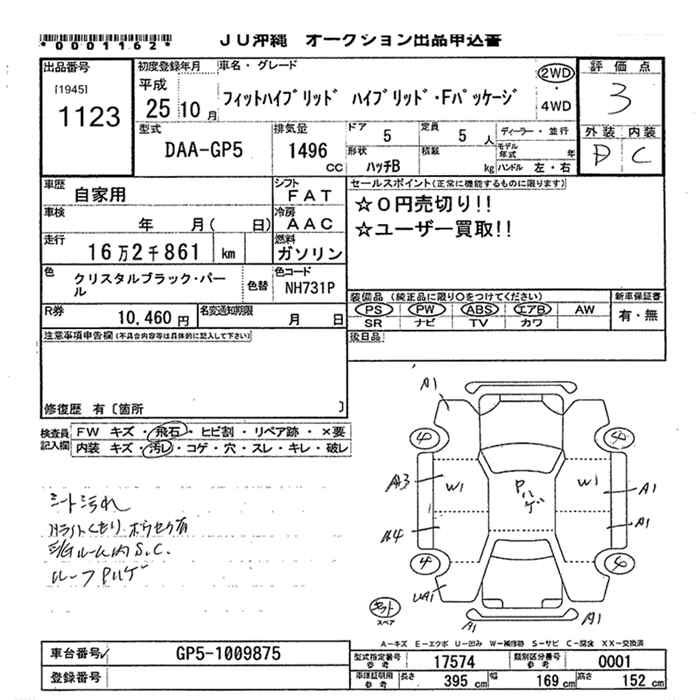 *0001162*
JU沖縄 オークション出品申込書
出品番号
[1945]
1123
初度登録年月
平成
25 10 月
車名・グレード
フィットハイブリッド ハイブリッド・Fパッケージ
2WD
・
4WD
評価点
3
外装 内装
D C
型式
DAA-GP5
排気量
1496
CC
ドア
5
定員
5 人
ディーラー・並行
モデル年式 年
形状
ハッチB
積載
kg
ハンドル 左・右
車歴
自家用
シフト
FAT
車検
年 月( 日)
冷房
AAC
走行
16万2千861 km
燃料
ガソリン
色
クリスタルブラック・パール
色替
色コード
NH731P
R券
10,460円
名変通知期限
月 日
セールスポイント(正常に機能するものに限ります)
☆0円売切り!!
☆ユーザー買取!!
装備品 (純正品に限り○をつけてください)
PS PW ABS エアB AW
SR ナビ TV カワ
新車保証書
有・無
後日品
注意事項申告欄(不具合内容等は具体的に記入して下さい)
修復歴 有〔箇所 〕
検査員記入欄
FW キズ・飛石・ヒビ割・リペア跡・×要
内装 キズ・汚レ・コゲ・穴・スレ・キレ・破レ
シート汚れ
S.C.
ルーフPハゲ
A1
4 4
A3 W1 Pハゲ W1 A1
A4 A1
4 4
UA1
スペア
A1 A1
A-キズ E-エクボ U-凹み W-補修跡 S-サビ C-腐食 XX-交換済
車台番号
GP5-1009875
登録番号
型式指定番号
参考
17574
類別区分番号
参考
0001
車庫証明用
参考
長さ
395 cm
幅
169 cm
高さ
152 cm